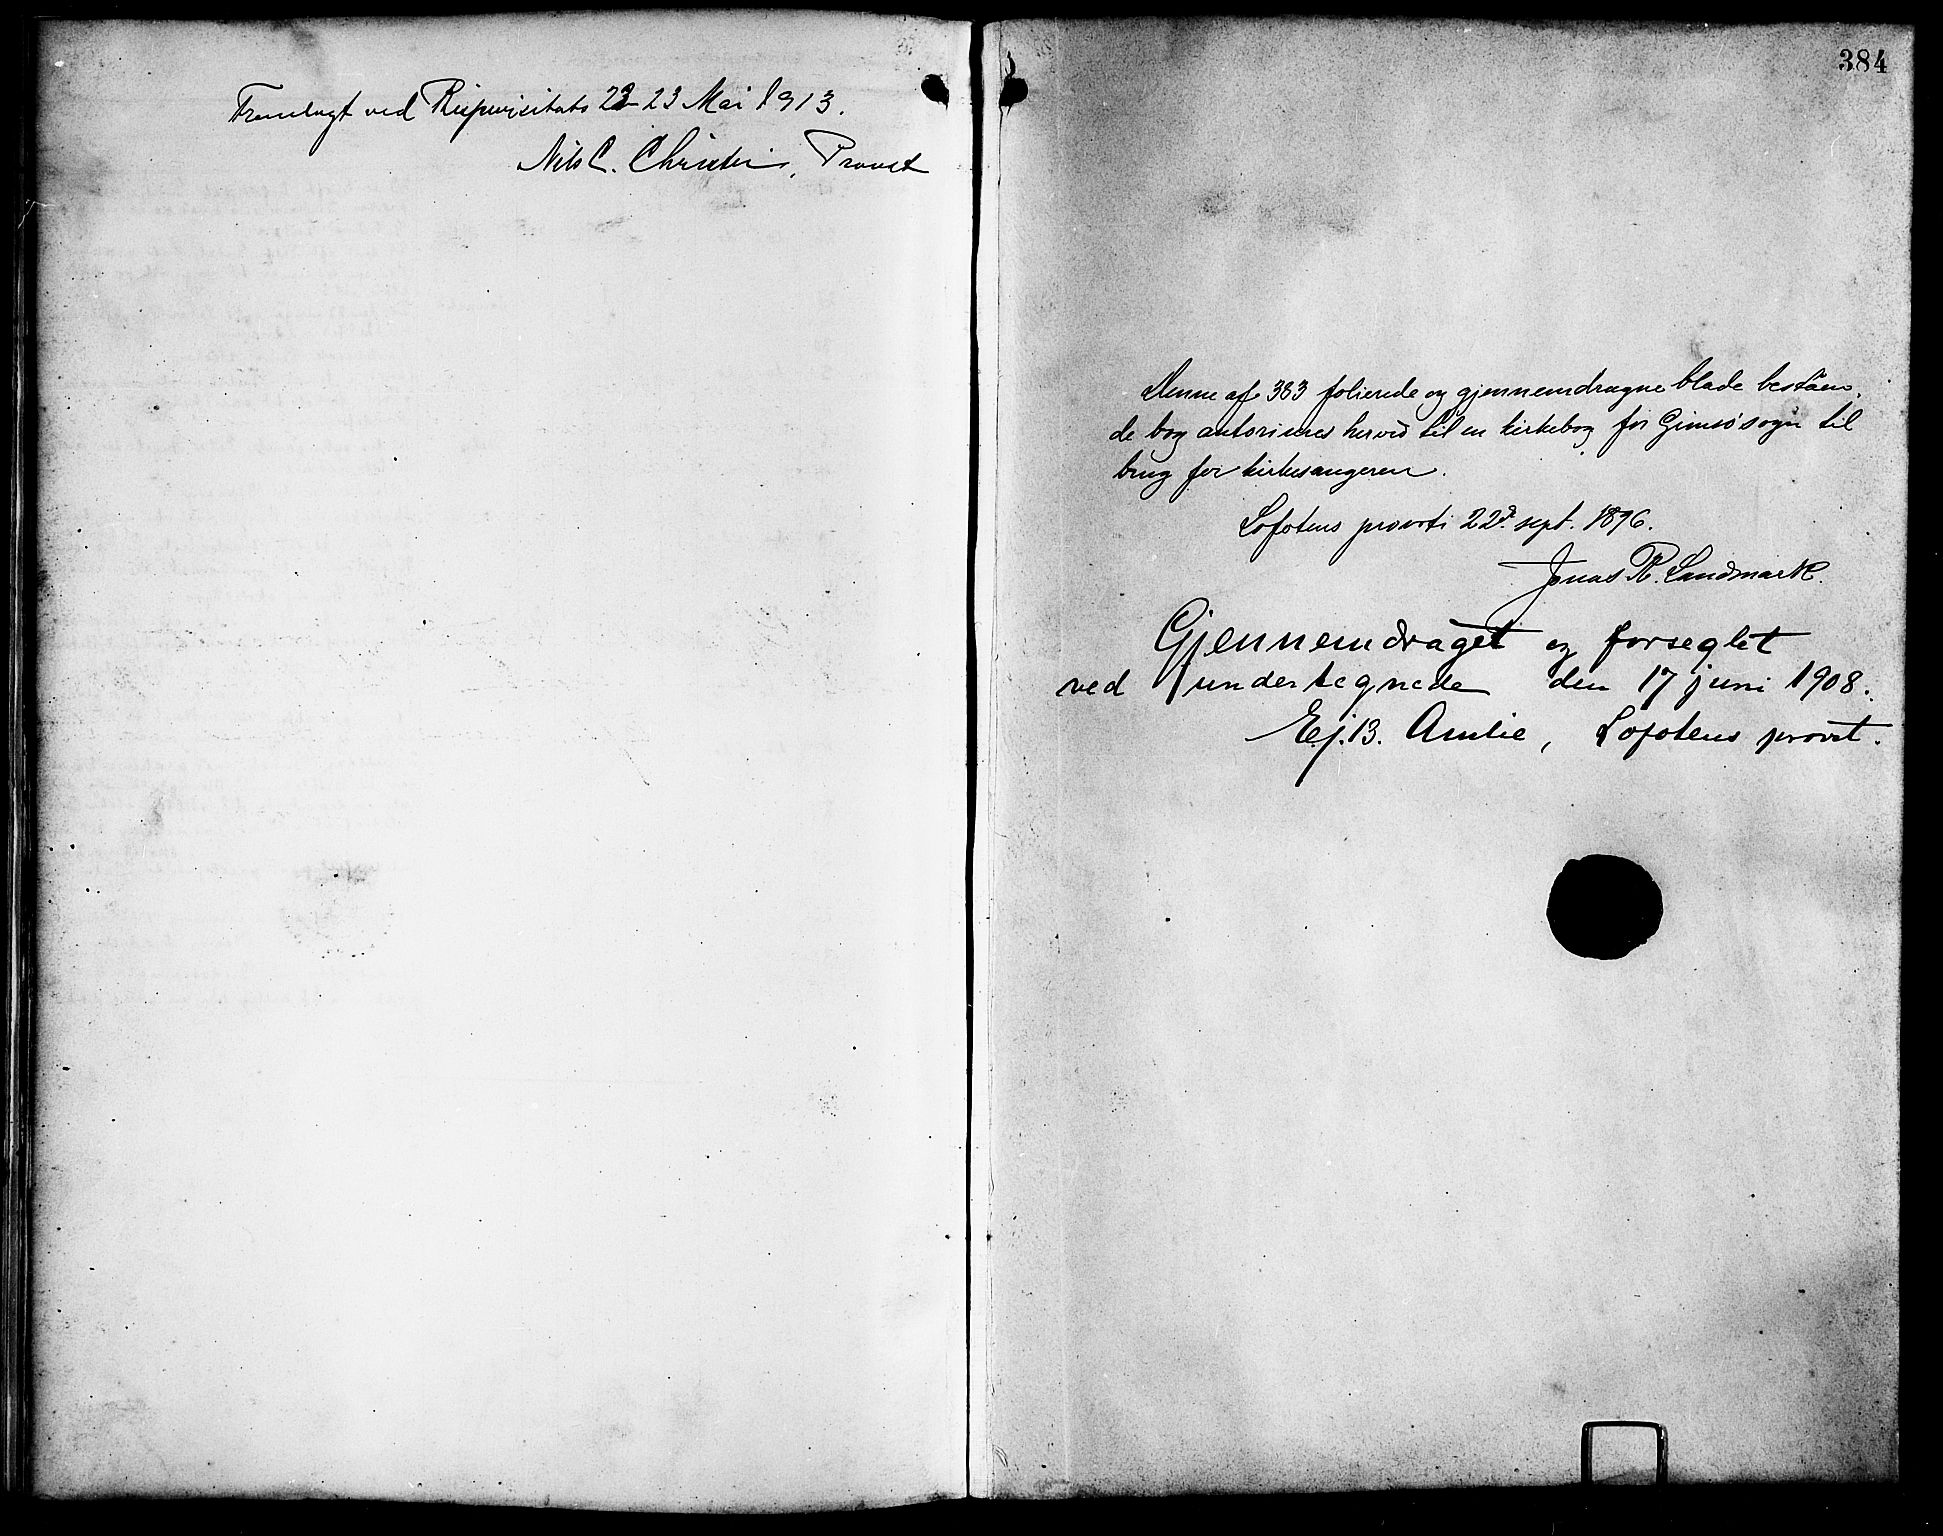 Fremlagt ved Bispevisitats 22-23 Mai 1913.
Nils C. Provst
384
Denne af 383 folierede og gjennemdragne blade beståen-
de bog autoriseres herved til en kirkebog for Gimsø sogn til
brug for kirkesangeren.
Lofotens provsti 22d. sept. 1896.
Jonas R. Landmark.
Gjennemdraget og forseglet
ved undertegnede den 17 juni 1908.
Lofotens provst.